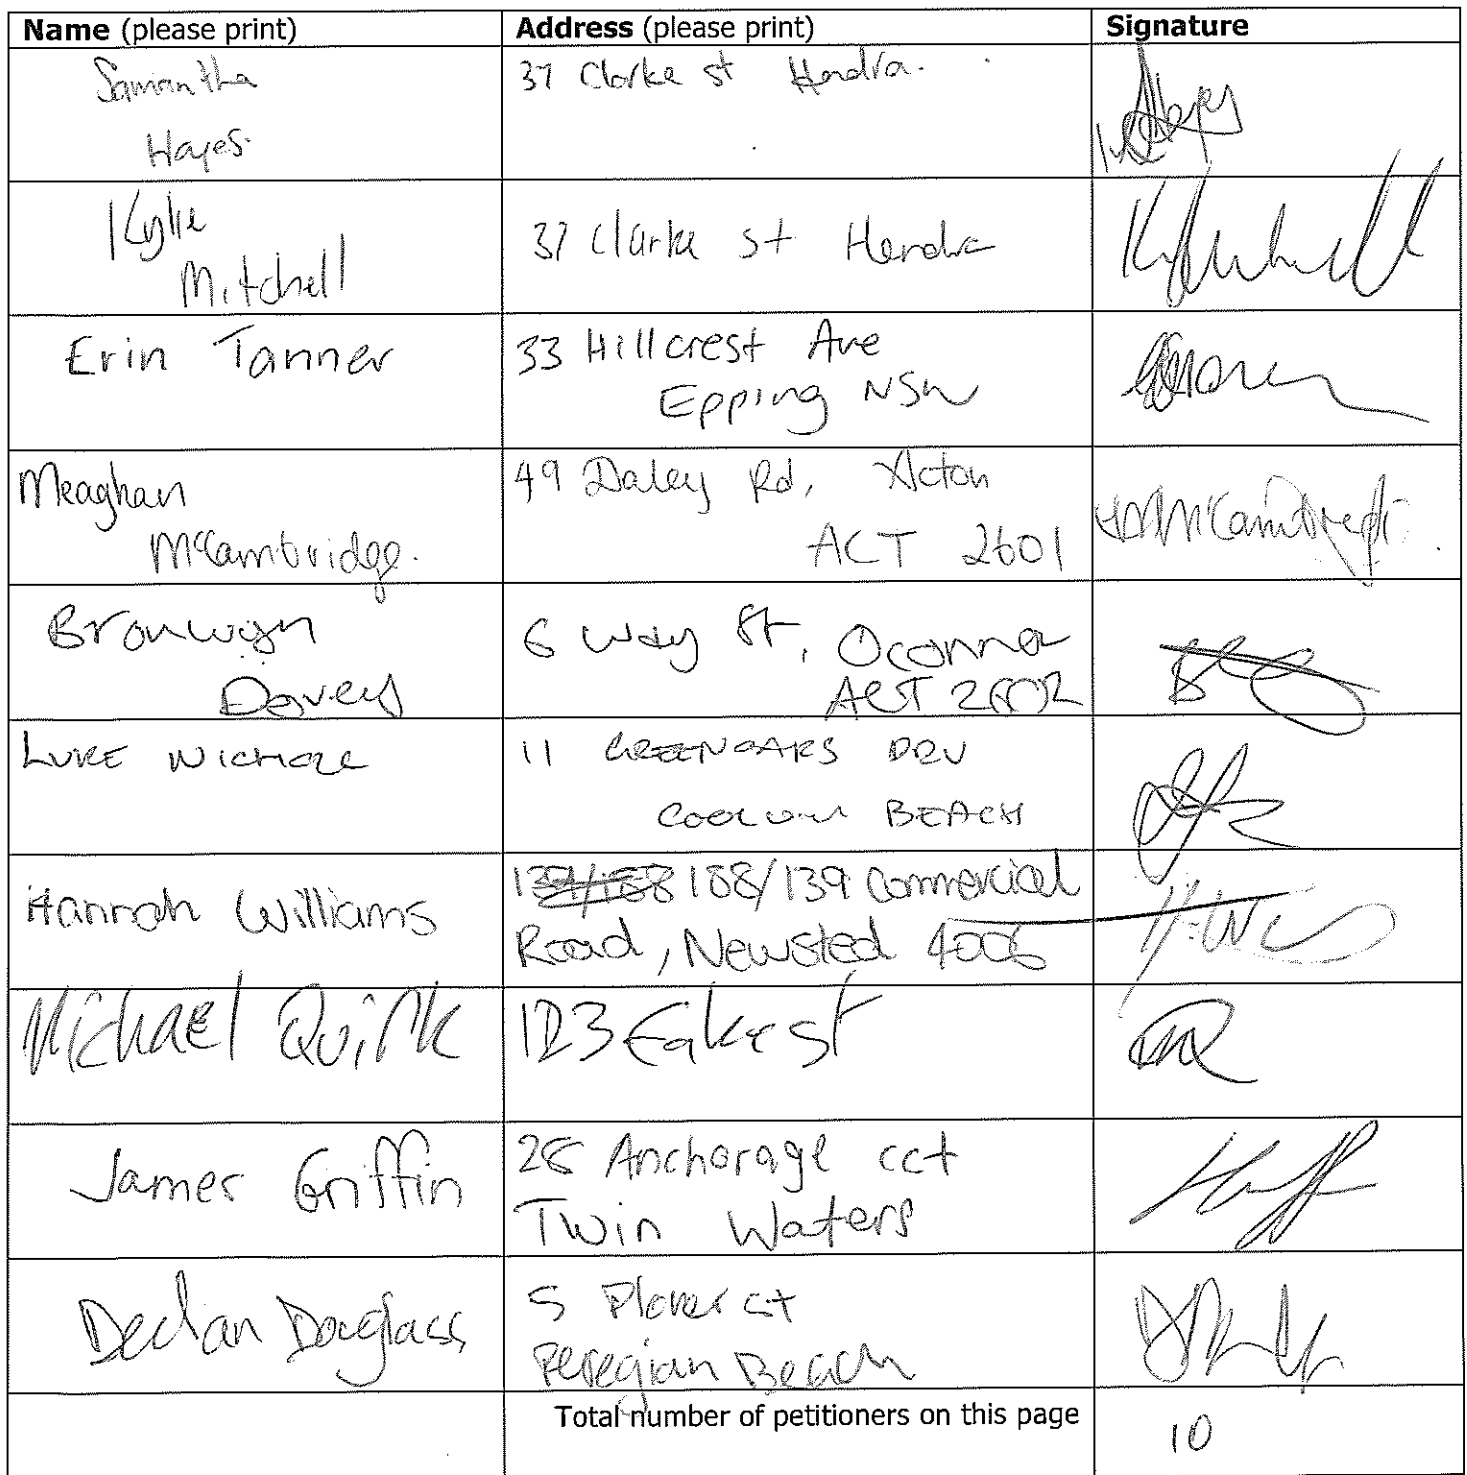 Name (please print) Address (please print) Signature
Samantha 37 Clarke st Hendra.
Hayes.
Kylie 37 Clarke st Hendra
Mitchell
Erin Tanner 33 Hillcrest Ave
Epping NSW
Meaghan 49 Daley Rd, Acton
McCambridge. ACT 2601
Bronwyn 6 Way St, Oconnor
Davey ACT 2602
LUKE 11 GREENOAKS DRV
COOLUM BEACH
Hannah Williams 188/139 Commercial
Road, Newsted 4006
Michael Quirk 123 Fake st
James Griffin 28 Anchorage cct
Twin Waters
Declan Douglass 5 Plover ct
Peregian Beach
Total number of petitioners on this page 10